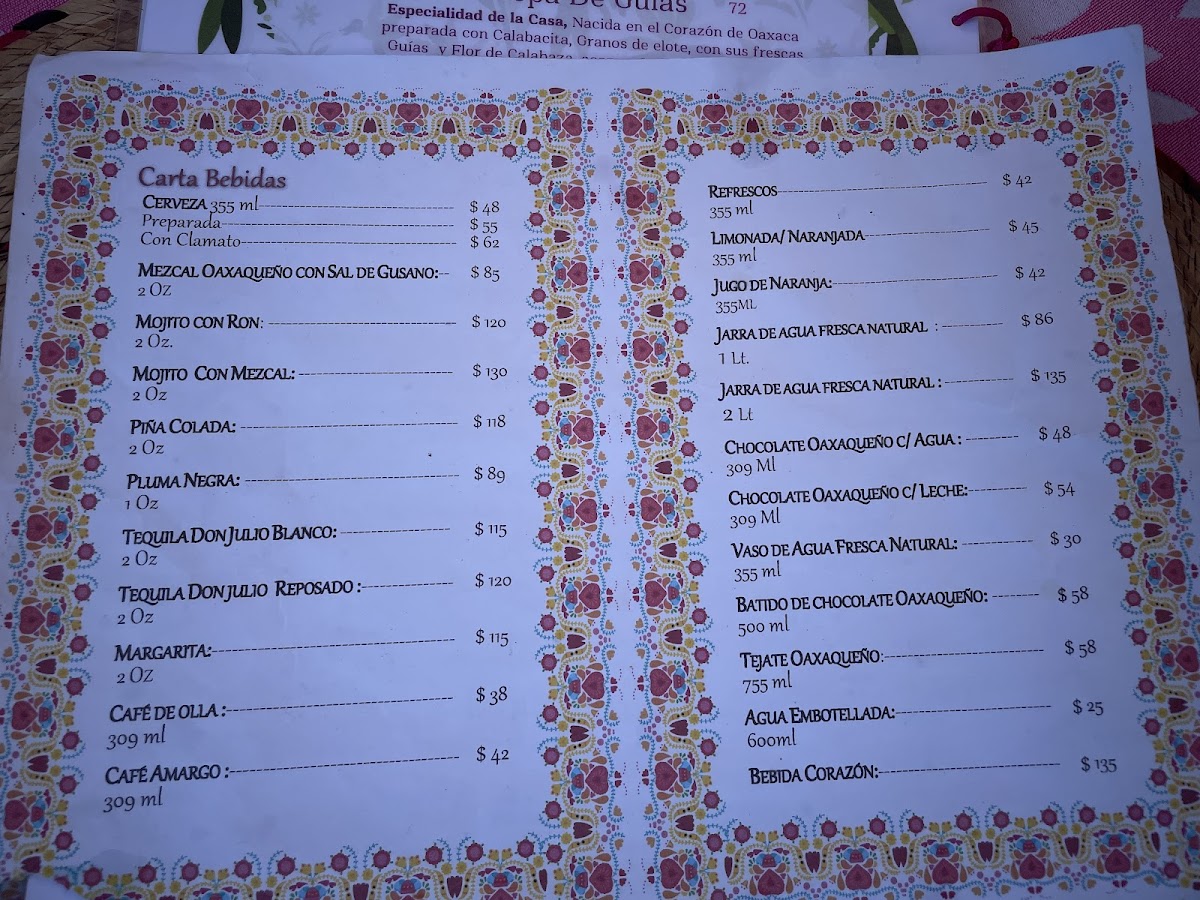 De Guías 72
Especialidad de la Casa, Nacida en el Corazón de Oaxaca
preparada con Calabacita, Granos de elote, con sus frescas
Guías y Flor de Calabaza
Carta Bebidas
CERVEZA 355 ml $ 48
Preparada $ 55
Con Clamato $ 62
MEZCAL OAXAQUEÑO CON SAL DE GUSANO: $ 85
2 Oz
MOJITO CON RON: $ 120
2 Oz.
MOJITO CON MEZCAL: $ 130
2 Oz
PIÑA COLADA: $ 118
2 Oz
PLUMA NEGRA: $ 89
1 Oz
TEQUILA DON JULIO BLANCO: $ 115
2 Oz
TEQUILA DON JULIO REPOSADO : $ 120
2 Oz
MARGARITA: $ 115
2 OZ
CAFÉ DE OLLA : $ 38
309 ml
CAFÉ AMARGO : $ 42
309 ml
REFRESCOS $ 42
355 ml
LIMONADA/ NARANJADA $ 45
355 ml
JUGO DE NARANJA: $ 42
355ML
JARRA DE AGUA FRESCA NATURAL : $ 86
1 Lt.
JARRA DE AGUA FRESCA NATURAL : $ 135
2 Lt
CHOCOLATE OAXAQUEÑO C/ AGUA : $ 48
309 Ml
CHOCOLATE OAXAQUEÑO C/ LECHE: $ 54
309 Ml
VASO DE AGUA FRESCA NATURAL: $ 30
355 ml
BATIDO DE CHOCOLATE OAXAQUEÑO: $ 58
500 ml
TEJATE OAXAQUEÑO: $ 58
755 ml
AGUA EMBOTELLADA: $ 25
600ml
BEBIDA CORAZÓN: $ 135